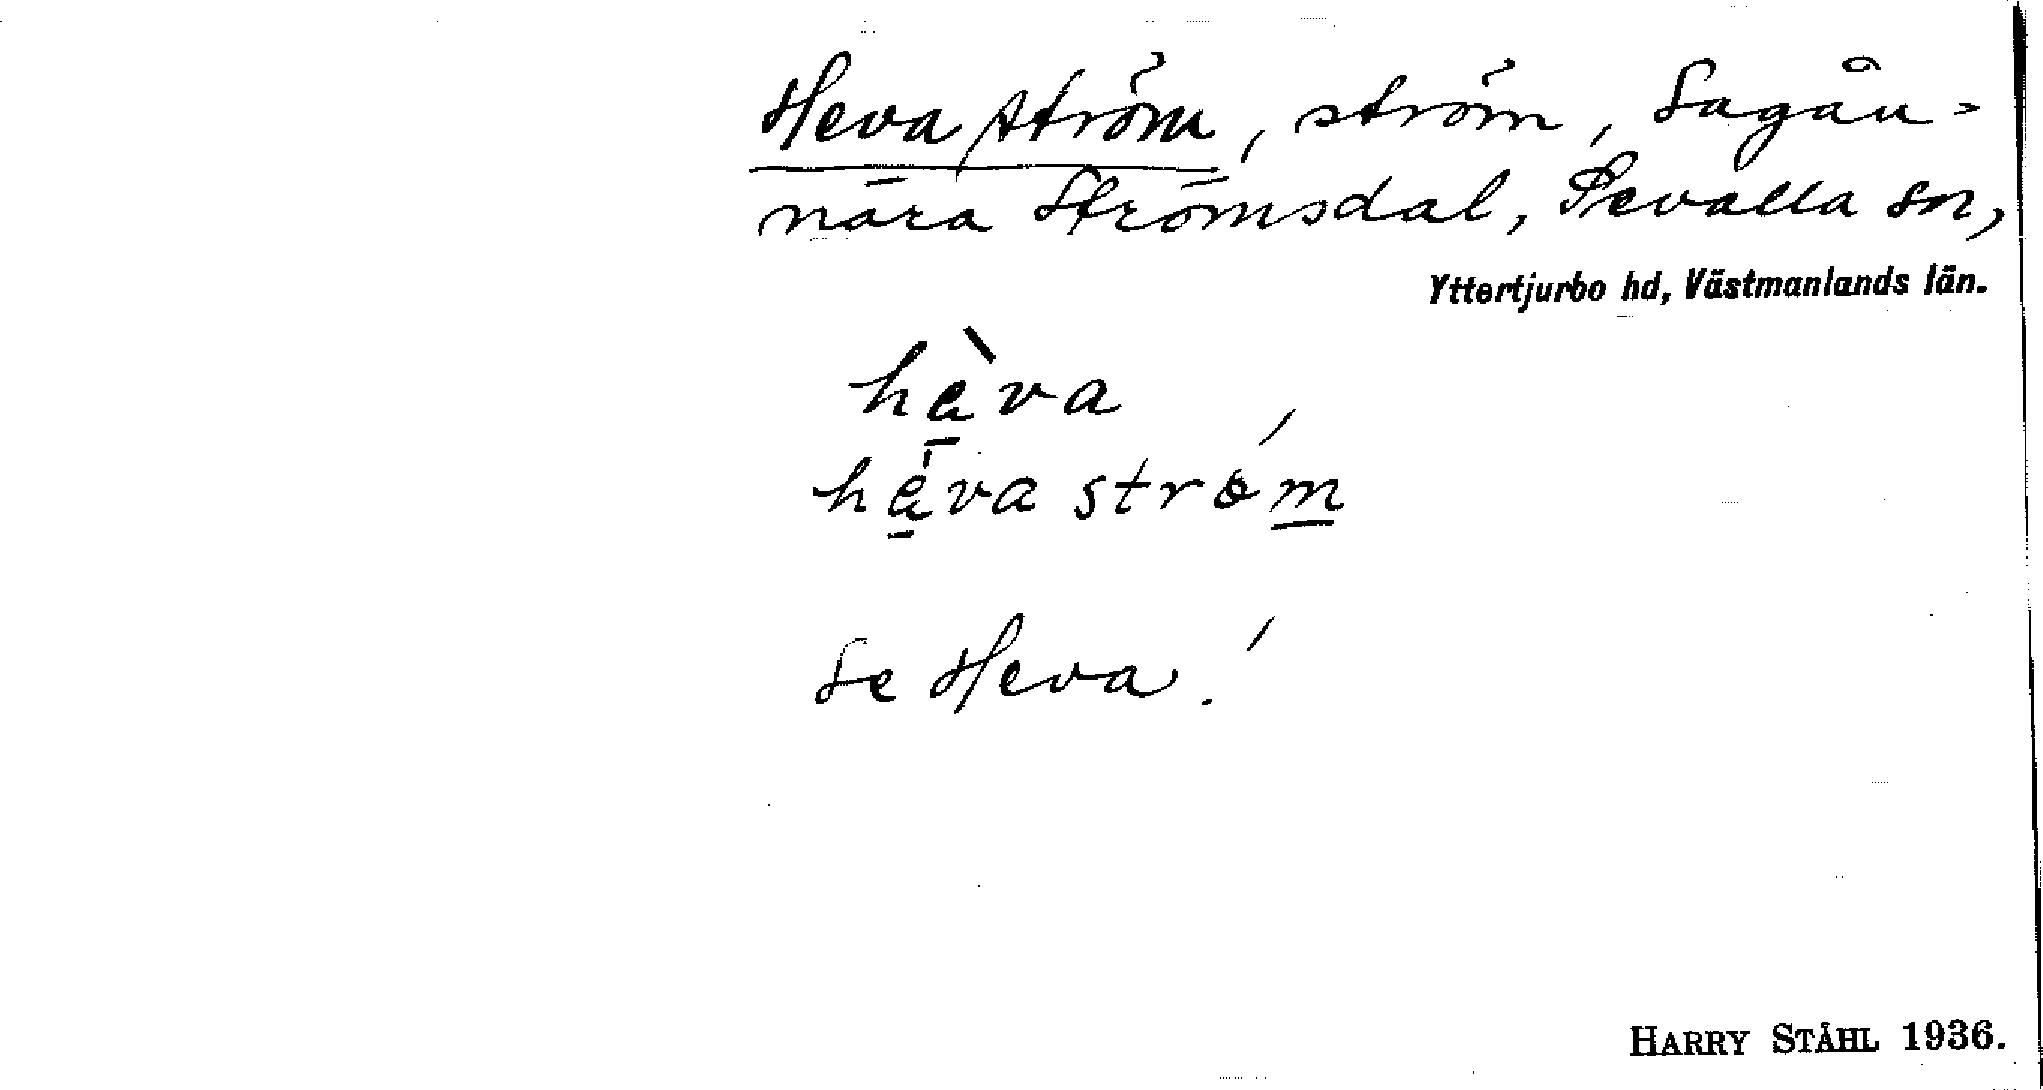 Heva ström, ström, Sagån =
nära Strömsdal, Sevalla sn,
Yttertjurbo hd, Västmanlands län.
hèva
hèva strö́m
Se Heva!
HARRY STÅHL 1936.